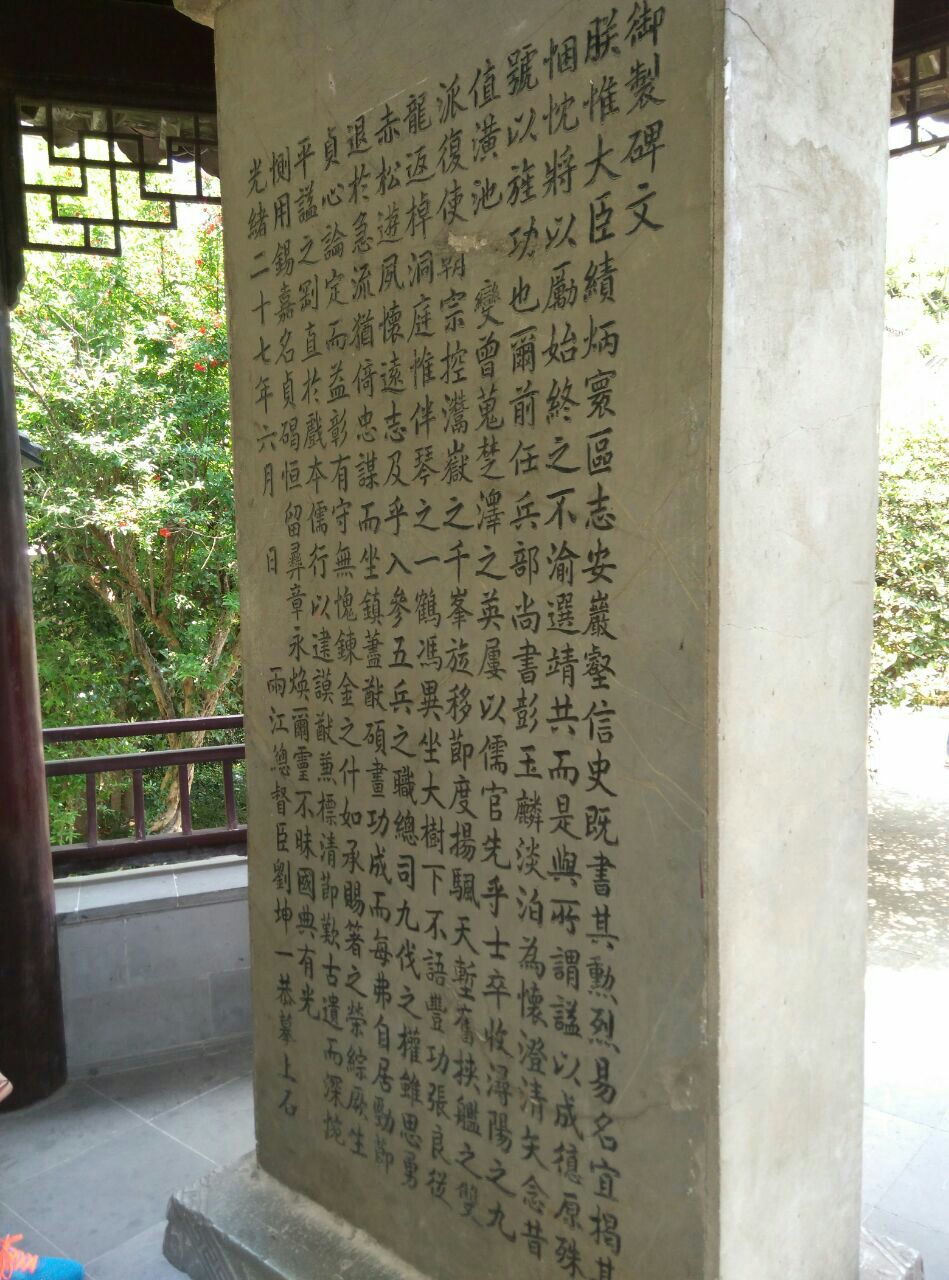 御製碑文
朕惟大臣績炳寰區志安巖壑信史既書其勳烈易名宜揭其
悃忱將以勵始終之不渝選靖共而是與所謂諡以成德原殊
號以旌功也爾前任兵部尚書彭玉麟淡泊為懷澄清矢念昔
值潢池 變曾蒐楚澤之英屢以儒官先乎士卒收潯陽之九
派復使朝宗控灊嶽之千峯旋移節度揚颿天塹奮挾艦之雙
龍返棹洞庭惟伴琴之一鶴馮異坐大樹下不語豐功張良從
赤松遊夙懷遠志及乎入參五兵之職總司九伐之權雖思勇
退於急流猶倚忠謀而坐鎮藎猷碩畫功成而每弗自居勁節
貞心論定而益彰有守無愧鍊金之什如承賜箸之榮綜厥生
平諡之剛直於戲本儒行以建謨猷兼標清節歎古遺而深惋
惻用錫嘉名貞碣恒留彞章永煥爾靈不昧國典有光
光緒二十七年六月 日 兩江總督臣劉坤一恭摹上石